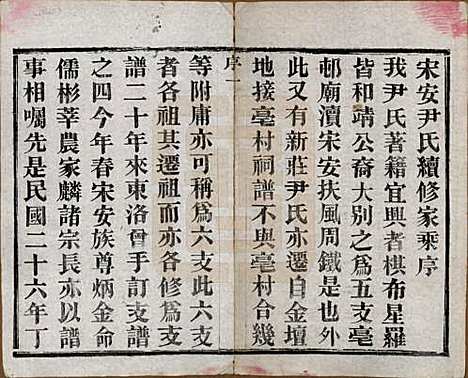 宋安尹氏續修家乘序
我尹氏著籍宜興者棋布星羅
皆和靖公裔大别之為五支亳
邨廟瀆宋安扶風周鐵是也外
此又有新莊尹氏亦遷自金壇
地接亳村祠譜不與亳村合幾
序一
等附庸亦可稱為六支此六支
者各祖其遷祖而亦各修為支
譜二十年來東洛曾手訂支譜
之四今年春宋安族尊炳金命
儒彬莘農家麟諸宗長亦以譜
事相囑先是民國二十六年丁